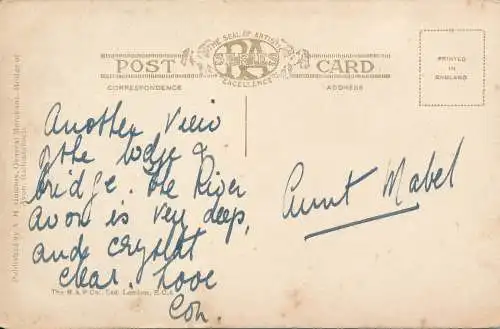 THE SEAL OF ARTISTIC
EXCELLENCE
POST CARD
CORRESPONDENCE
ADDRESS
PRINTED
IN
ENGLAND
Another view
of the lodge &
bridge. The River
Avon is very deep,
and crystal
clear. Love
Con.
Aunt Mabel
The R.A.P Co., Ltd. London, E.C.4
Published by A. M. Simpson, General Merchant, Bridge of
Avon, Ballindalloch.